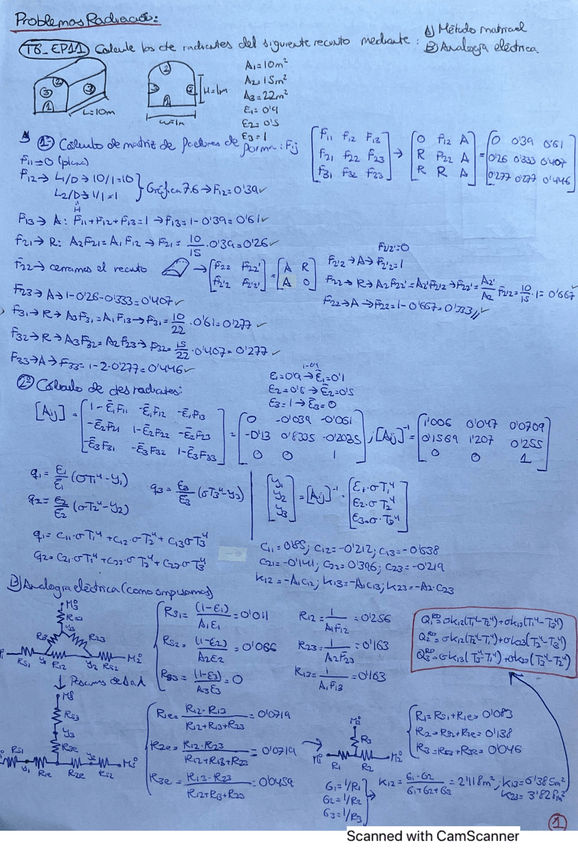 Problemas Radiación:
T8.EP11 Calcule los de radiantes del siguiente recinto mediante: A) Método matricial
B) Analogía eléctrica
A1=10m²
A2=15m²
A3=22m²
ε1=0'9
ε2=0'5
ε3=1
L=10m
H=1m
W=1m
1º Cálculo de matriz de factores de forma: Fij [F11 F12 F13; F21 F22 F23; F31 F32 F33] → [0 F12 A; R F22 A; R R A] = [0 0'39 0'61; 0'26 0'333 0'407; 0'277 0'277 0'446]
F11→0 (plana)
F12→ L1/D→10/1=10
L2/D→1/1=1
Gráfica 7.6→F12=0'39
F13→A: F11+F12+F13=1→F13=1-0'39=0'61
F21→R: A2F21=A1F12→F21=10/15·0'39=0'26
F22→cerramos el recinto → [F22 F22'; F2'2 F2'2'] = [A R; A 0]
F2'2'=0
F2'2→A→F2'2=1
F22'→R→A2F22'=A2'F2'2→F22'=A2'/A2 F2'2=10/15·1=0'667
F22→A→F22=1-0'667=0'333
F23→A→1-0'26-0'333=0'407
F31→R→A3F31=A1F13→F31=10/22·0'61=0'277
F32→R→A3F32=A2F23→F32=15/22·0'407=0'277
F33→A→F33=1-2·0'277=0'446
2º Cálculo de des radiantes:
ε1=0'9→ε̄1=0'1
ε2=0'5→ε̄2=0'5
ε3=1→ε̄3=0
[Aij]=[1-ε̄1F11 -ε̄1F12 -ε̄1F13; -ε̄2F21 1-ε̄2F22 -ε̄2F23; -ε̄3F31 -ε̄3F32 1-ε̄3F33]=[0 -0'039 -0'061; -0'13 0'8335 -0'2035; 0 0 1]; [Aij]⁻¹=[1'006 0'047 0'0709; 0'1569 1'207 0'255; 0 0 1]
q1=ε1/ε̄1(σT1⁴-y1)
q2=ε2/ε̄2(σT2⁴-y2)
q3=ε3/ε̄3(σT3⁴-y3)
[y1; y2; y3]=[Aij]⁻¹·[ε1·σT1⁴; ε2·σT2⁴; ε3·σ·T3⁴]
q1=C11·σT1⁴+C12·σT2⁴+C13σT3⁴
q2=C21·σT1⁴+C22·σT2⁴+C23σT3⁴
C11=0'85; C12=-0'212; C13=-0'638
C21=-0'141; C22=0'396; C23=-0'219
K12=-A1C12; K13=-A1C13; K23=-A2·C23
B) Analogía eléctrica (como empezamos)
RS1=(1-ε1)/A1ε1=0'011
RS2=(1-ε2)/A2ε2=0'066
RS3=(1-ε3)/A3ε3=0
R12=1/A1F12=0'256
R23=1/A2F23=0'163
R13=1/A1F13=0'163
Q1=σK12(T1⁴-T2⁴)+σK13(T1⁴-T3⁴)
Q2=σK12(T2⁴-T1⁴)+σK23(T2⁴-T3⁴)
Q3=σK13(T3⁴-T1⁴)+σK23(T3⁴-T2⁴)
R1e=R12·R13/(R12+R13+R23)=0'0719
R2e=R12·R23/(R12+R13+R23)=0'0719
R3e=R13·R23/(R12+R13+R23)=0'0459
R1=RS1+R1e=0'083
R2=RS2+R2e=0'138
R3=RS3+R3e=0'046
G1=1/R1
G2=1/R2
G3=1/R3
K12=G1·G2/(G1+G2+G3)=2'118m²; K13=6'385m²
K23=3'825m²
1
Scanned with CamScanner